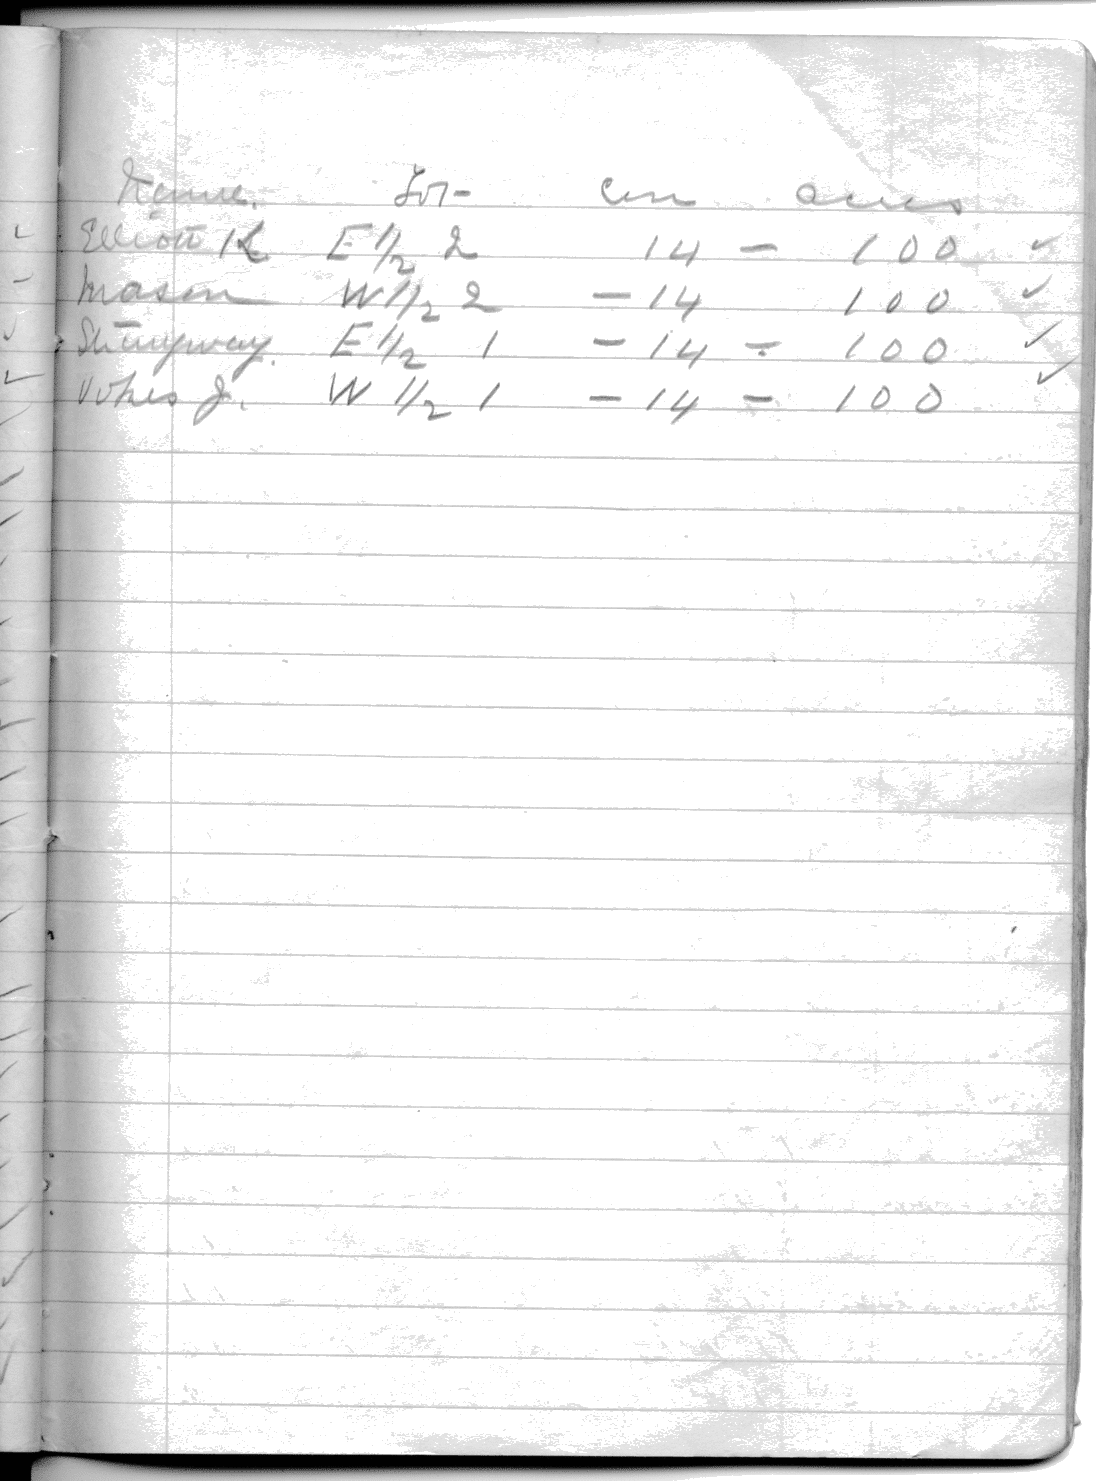 Name. Lot- Con acres
Elliott E 1/2 2 14 - 100 ✓
Mason W 1/2 2 - 14 100 ✓
Stingway. E 1/2 1 - 14 - 100 ✓
Vokes J. W 1/2 1 - 14 - 100 ✓